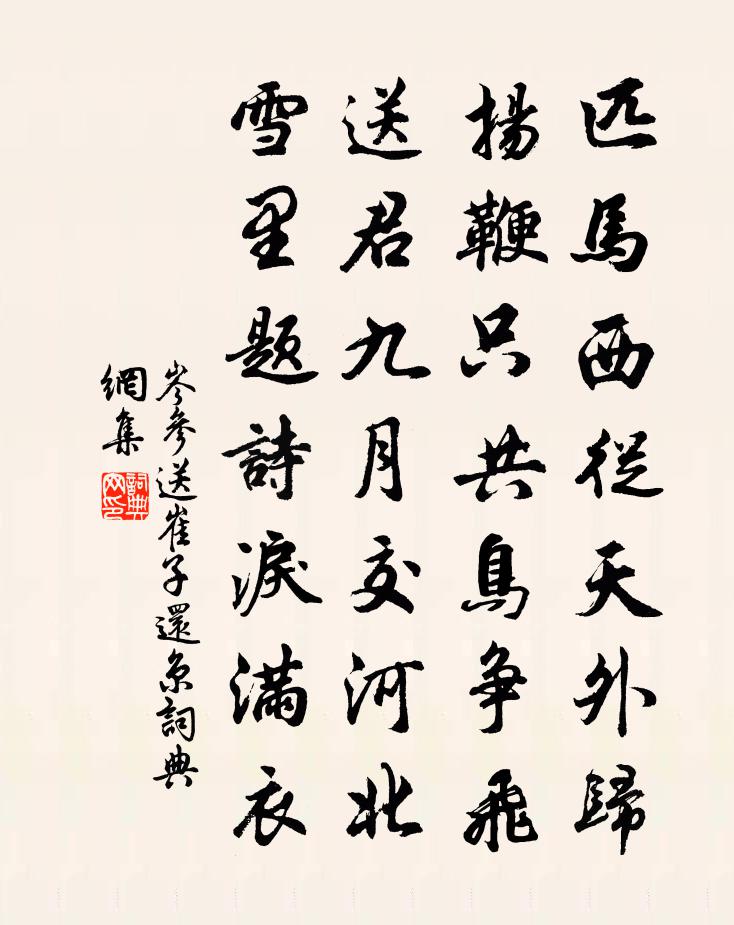 匹馬西從天外歸
揚鞭只共鳥爭飛
送君九月交河北
雪里題詩淚滿衣
岑參送崔子還京詞典
網集
詞典
网印